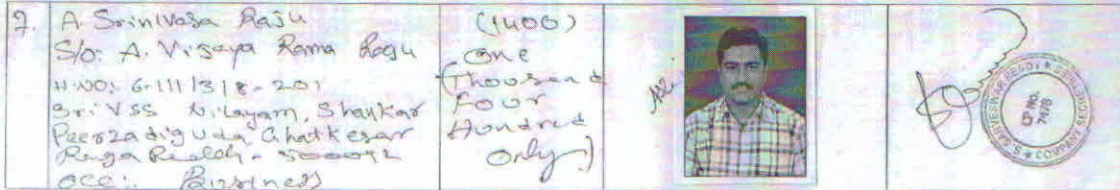 7. A. Srinivasa Raju
S/o. A. Vijaya Rama Raju
H.NO: 6-111/3/8-201
Sri VSS Nilayam, Shankar
Peerzadiguda Ghatkesar
Ranga Reddy - 500092
occ: Business
(1400)
One
(Thousand
Four
Hundred
Only)
S. SARVESWAR REDDY ★ COMPANY SECRETARIES ★
CP NO.
7478